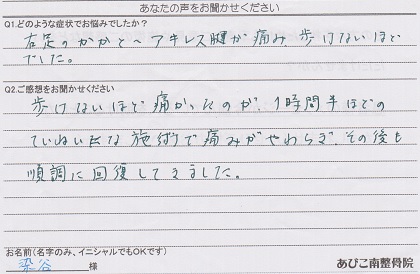 あなたの声をお聞かせください
Q1.どのような症状でお悩みでしたか？
右足のかかと〜アキレス腱が痛み、歩けないほど
でした。
Q2.ご感想をお聞かせください
歩けないほど痛かったのが、1時間半ほどの
ていねいな施術で痛みがやわらぎ、その後も
順調に回復してきました。
お名前(名字のみ、イニシャルでもOKです)
染谷 様
あびこ南整骨院